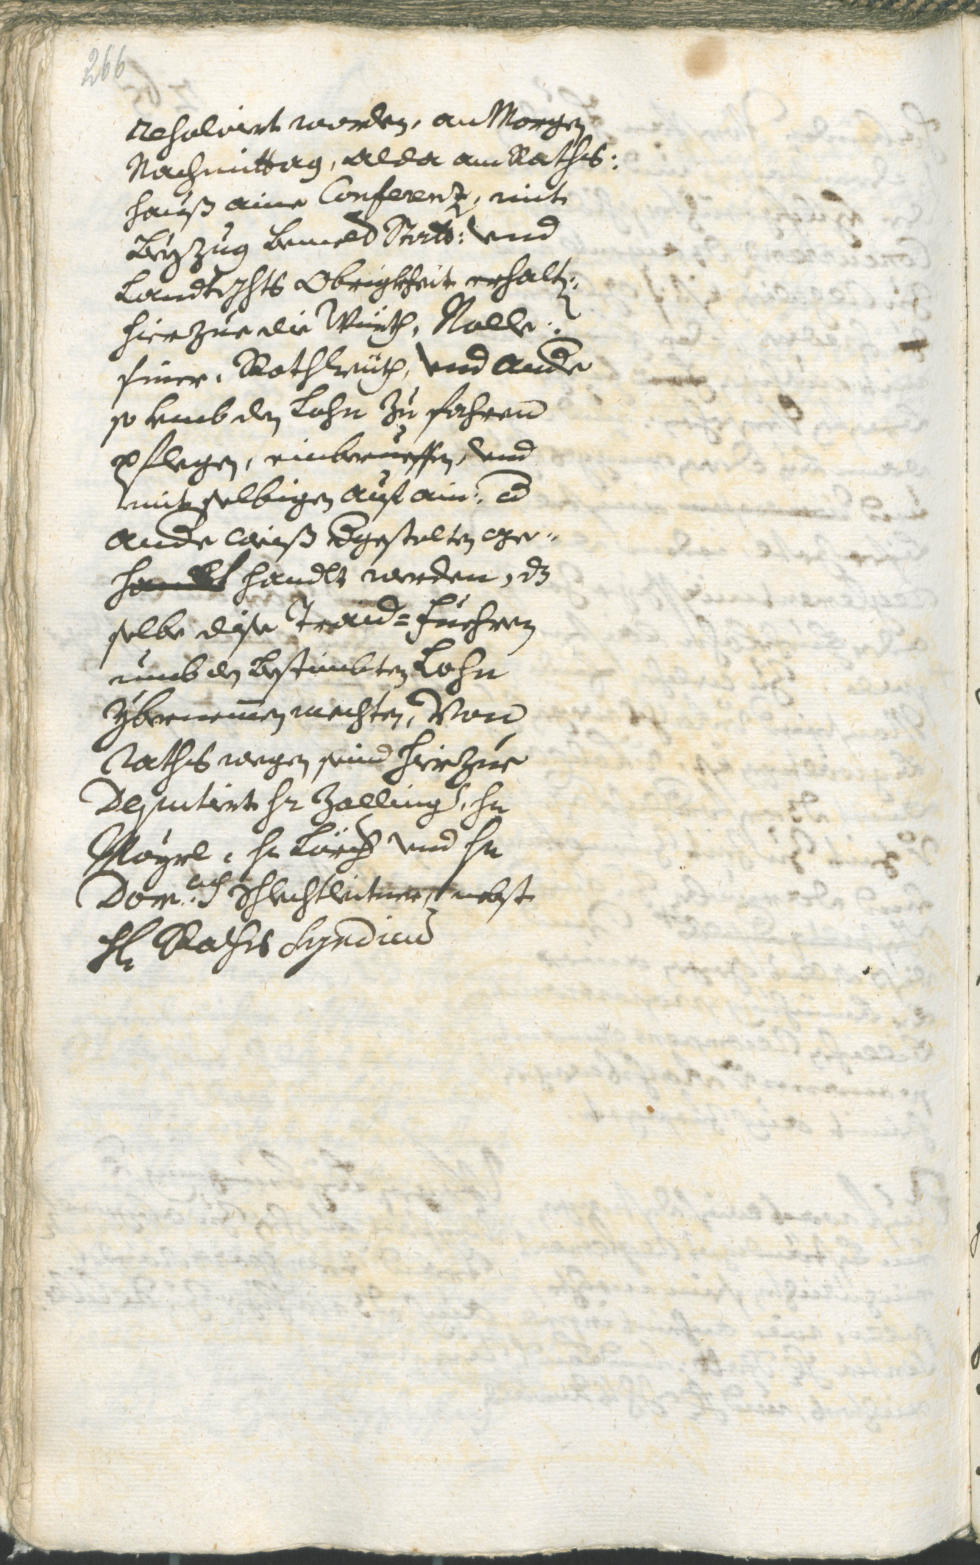 266
resolviert worden, an Morgen
Nachmittag, alda am Rathß:
hauß aine Conferenz, mit
Beyzug bemelt Statt: und
Landtgchts Obrigkheit erhalt:
hierzue die Würth,
finer, Rothleüth, und ande
so umb den Lohn zu fahren
pflegen, einberueffen, und
mit selbigen auf ain: od
ande weiß dgestalten ge-
handlt handlt werden, dz
selbe dise Traid=Fuehren
umb den bestimbten Lohn
ybernemen mechten, Von
Raths wegen seind hierzue
Deputiert hr Zallinger, hr
Mayrl, hr und hr
Schlechtleitner, nebst
H: Raths Syndico